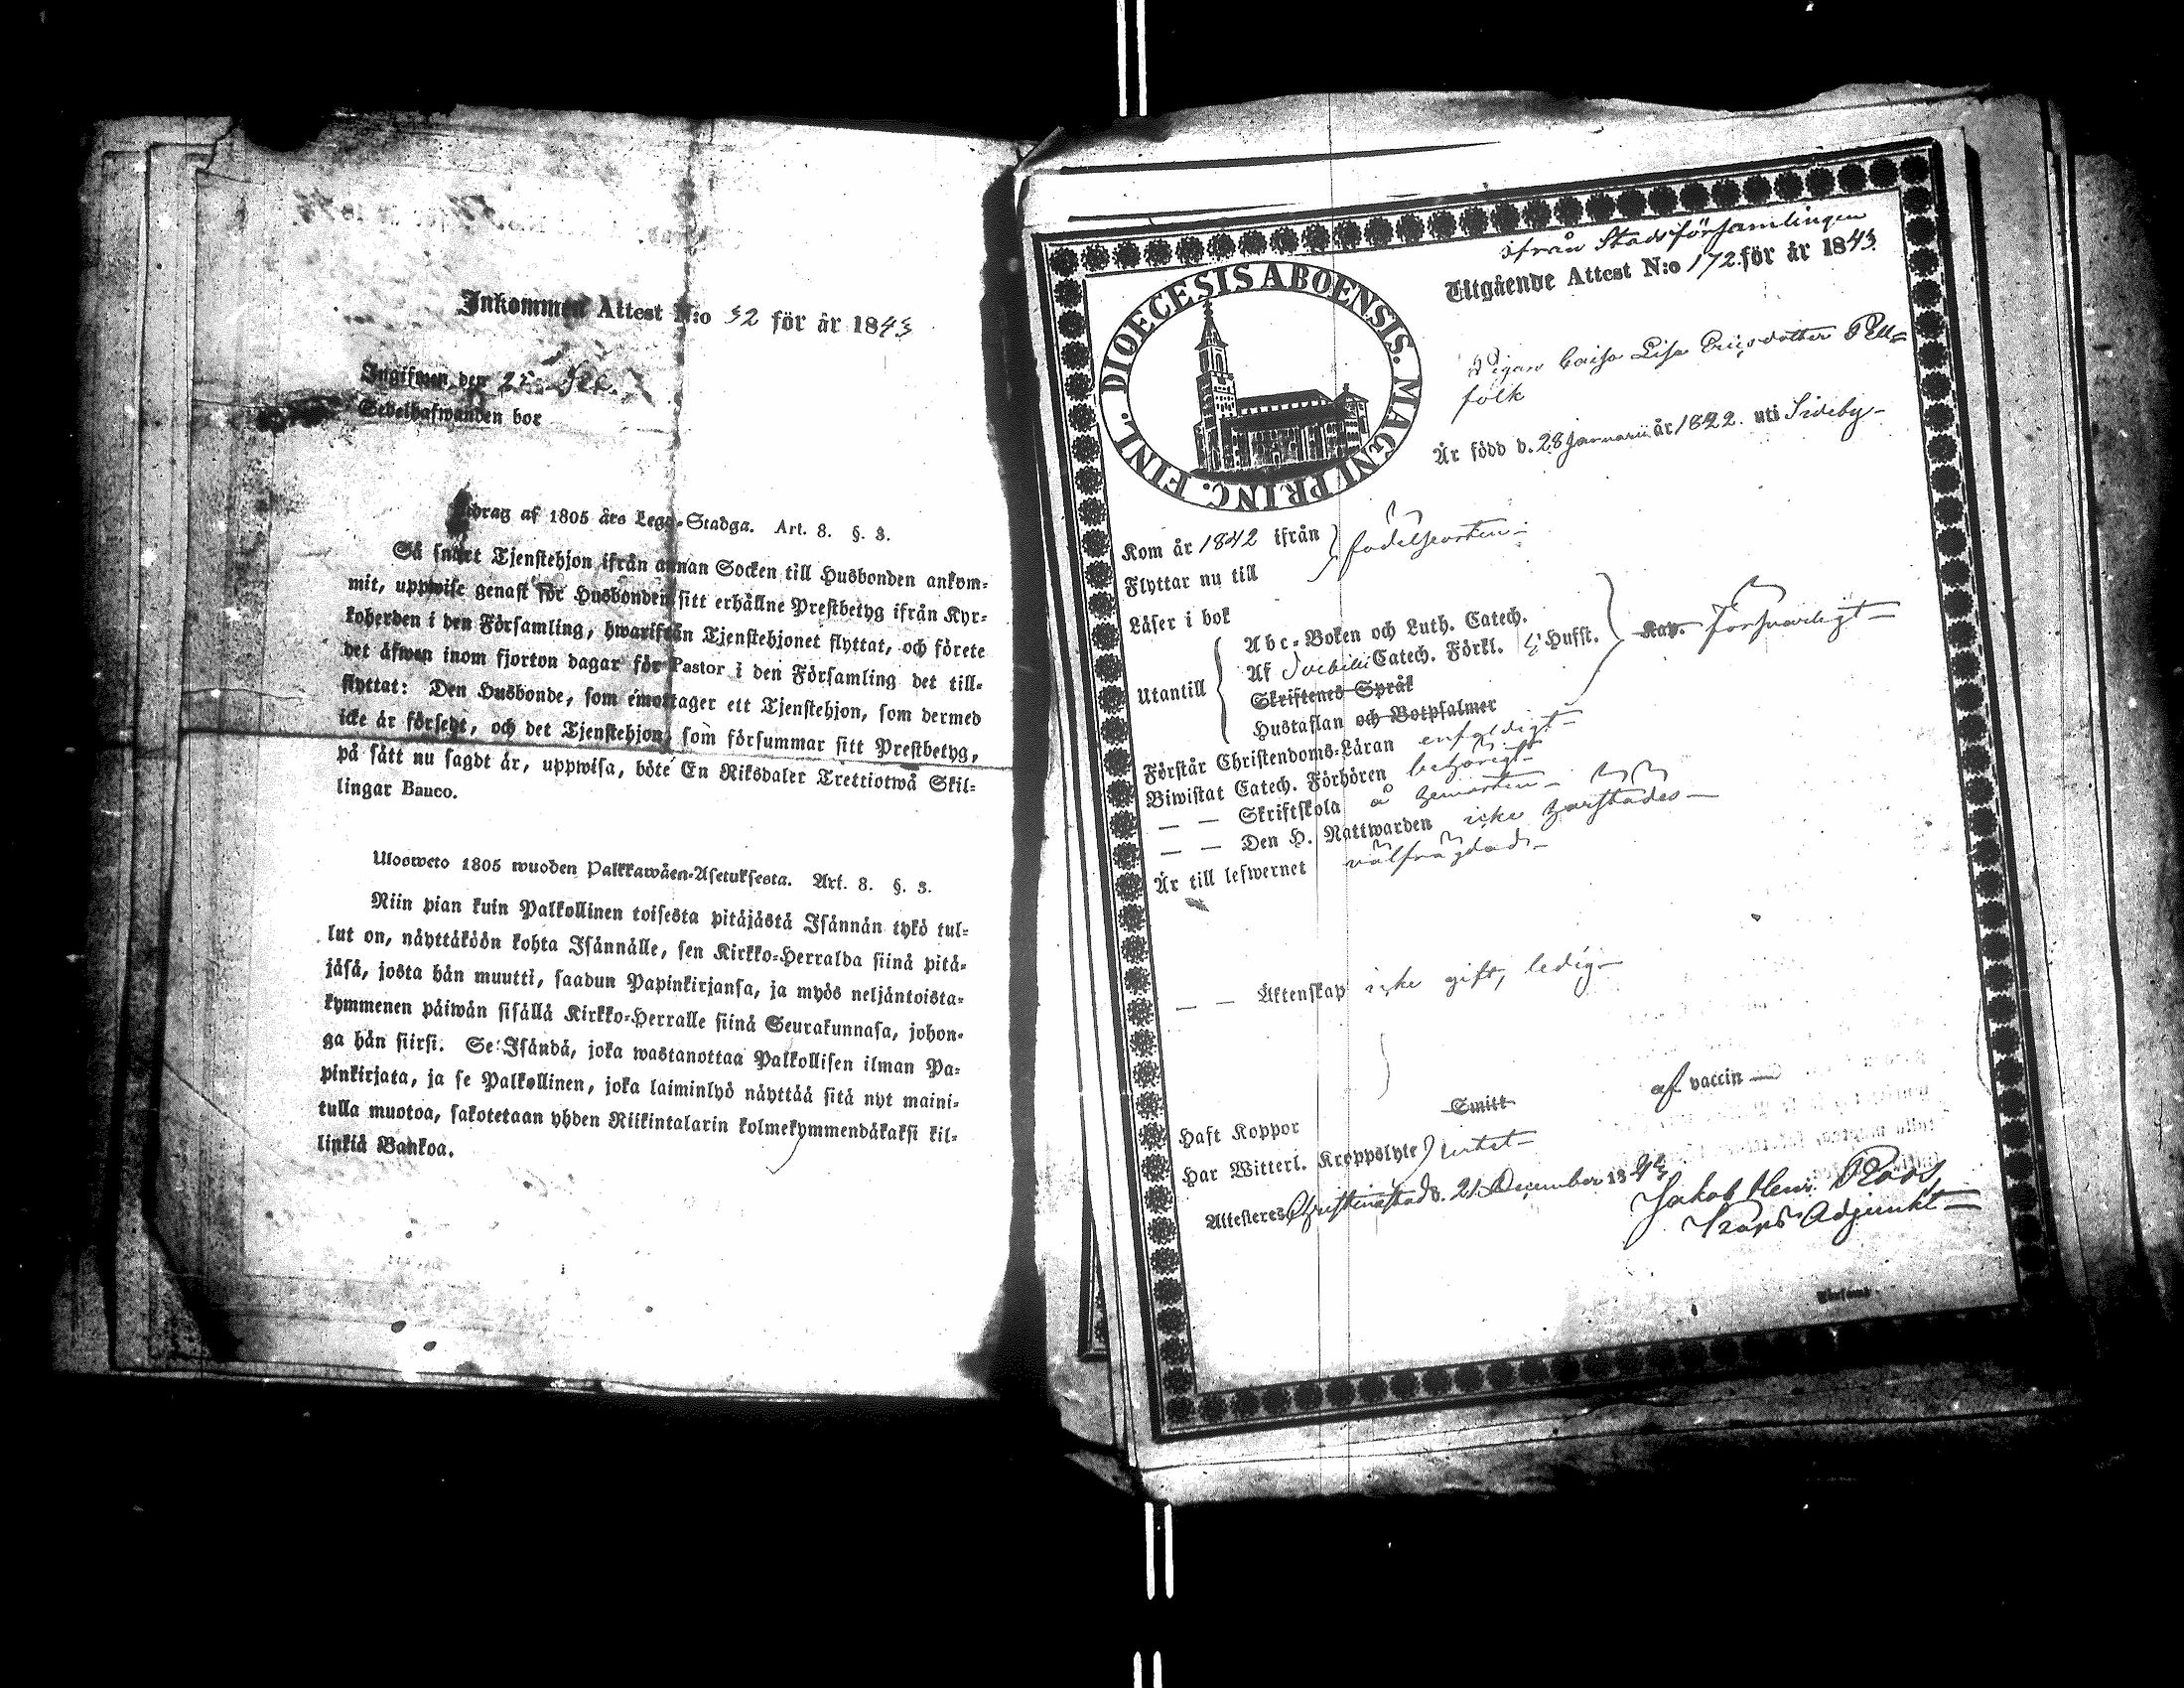 Inkommen Attest N:o 32 för år 1843
Ingifwen den 25 Dec.
Sedelhafwanden bor
Utdrag af 1805 års Lego-Stadga. Art. 8. §. 3.
Så snart Tjenstehjon ifrån annan Socken till Husbonden ankom-
mit, uppwise genast för Husbonden sitt erhållne Prestbetyg ifrån Kyr-
koherden i den Församling, hwarifrån Tjenstehjonet flyttat, och förete
det äfwen inom fjorton dagar för Pastor i den Församling det till-
flyttat: Den Husbonde, som emottager ett Tjenstehjon, som dermed
icke är försedt, och det Tjenstehjon, som försummar sitt Prestbetyg,
på sätt nu sagdt är, uppwisa, böte En Riksdaler Trettiotwå Skil-
lingar Banco.
Ulosweto 1805 wuoden Palkkawäen-Asetuksesta. Art. 8. §. 3.
Niin pian kuin Palkollinen toisesta pitäjästä Isännän tykö tul-
lut on, näyttäköön kohta Isännälle, sen Kirkko-Herralda siinä pitä-
jäsä, josta hän muutti, saadun Papinkirjansa, ja myös neljäntoista-
kymmenen päiwän sisällä Kirkko-Herralle siinä Seurakunnasa, johon-
ga hän siirsi. Se Isändä, joka wastanottaa Palkollisen ilman Pa-
pinkirjata, ja se Palkollinen, joka laiminlyö näyttää sitä nyt maini-
tulla muotoa, sakotetaan yhden Riikintalarin kolmekymmendäkaksi kil-
linkiä Bankoa.
DIOECESIS ABOENSIS. MAGNI PRINC. FINL.
ifrån Stadsförsamlingen
Utgående Attest N:o 172 för år 1843
Pigan Caisa Lisa Ericsdotter Röll-
folk
Är född d. 28 Januarii år 1822. uti Sideby
Kom år 1842 ifrån
Flyttar nu till
födelseorten
Läser i bok
Utantill
Abc-Boken och Luth. Catech.
Af Svebilii Catech. Förkl. Hufst.
Skriftenes Språk
Hustaflan och Botpsalmer
Kap. försvarligt
Förstår Christendoms-Läran enfaldigt
Biwistat Catech. Förhören behörigt
— — Skriftskola å hemorten
— — Den H. Nattwarden icke härstädes
Är till lefwernet välfrägdad
— — Äktenskap icke gift, ledig
Haft Koppor Smitt af vaccin
Har Witterl. Kroppslyte intet
Altesteres Christinestad d. 21 December 1843
Jakob Henr. Roos
Kaps Adjunkt